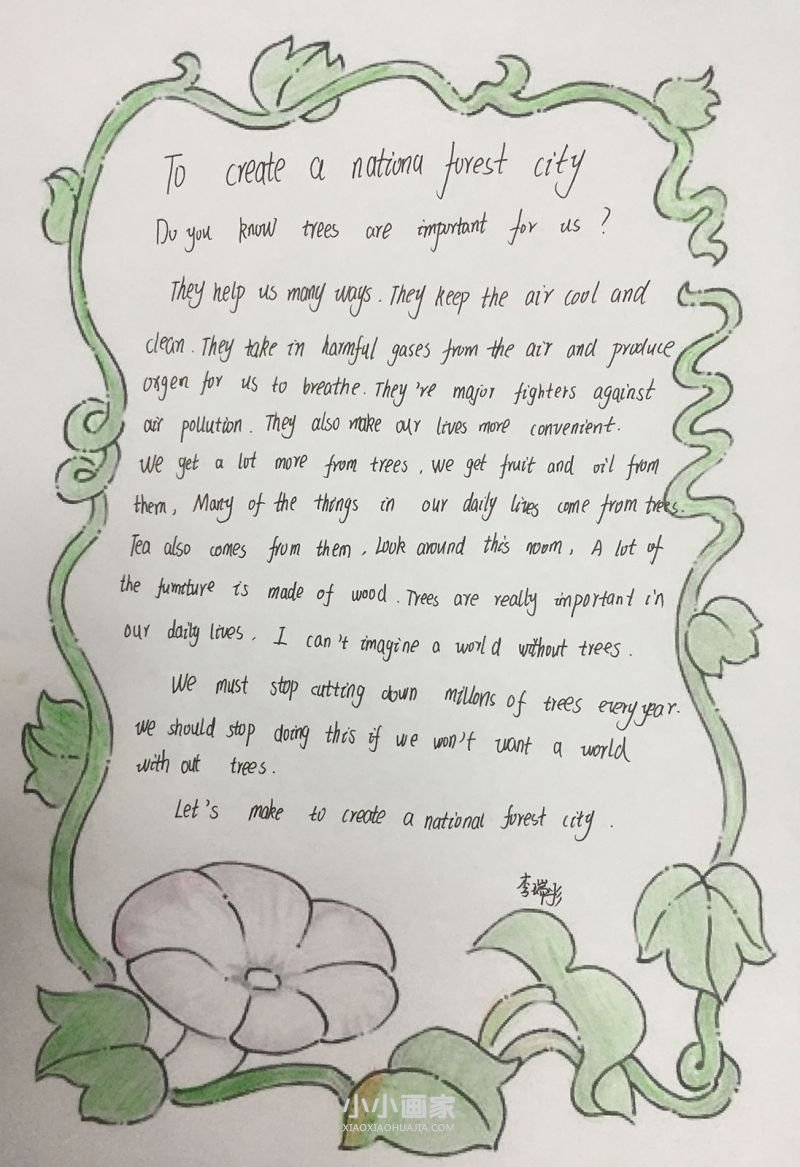 To create a nationa forest city
Do you know trees are important for us ?
They help us many ways . They keep the air cool and
clean . They take in harmful gases from the air and produce
oxgen for us to breathe. They 're major fighters against
air pollution . They also make our lives more convenient.
We get a lot more from trees , we get fruit and oil from
them , Many of the things in our daily lives come from trees.
Tea also comes from them , Look around this room , A lot of
the furniture is made of wood . Trees are really important in
our daily lives . I can't imagine a world without trees .
We must stop cutting down millons of trees every year.
we should stop doing this if we won't want a world
with out trees .
Let's make to create a national forest city .
李瑞彤
小小画家
XIAOXIAOHUAJIA.COM